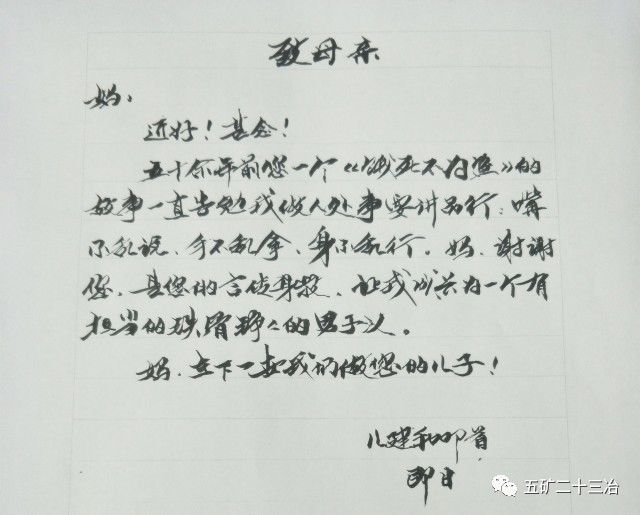 致母亲
妈：
近好！甚念！
五十余年前您一个《饿死不为盗》的
故事一直告勉我做人处事要讲品行：嘴
不乱说、手不乱拿、身不乱行。妈、谢谢
您、是您的言传身教、让我成长为一个有
担当的铁骨铮々的男子汉。
妈、在下一我们做您的儿子！
儿建和叩首
即日
五矿二十三冶